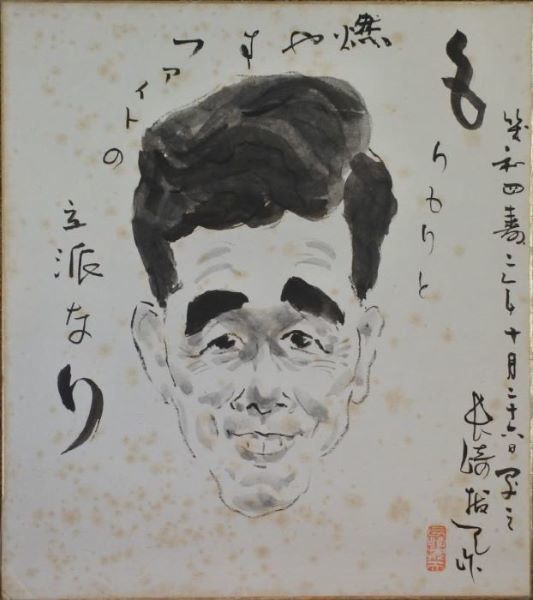 もりもりと
燃やす
ファイトの
立派なり
昭和四寿二年十月二十六日写之
長崎抜天作